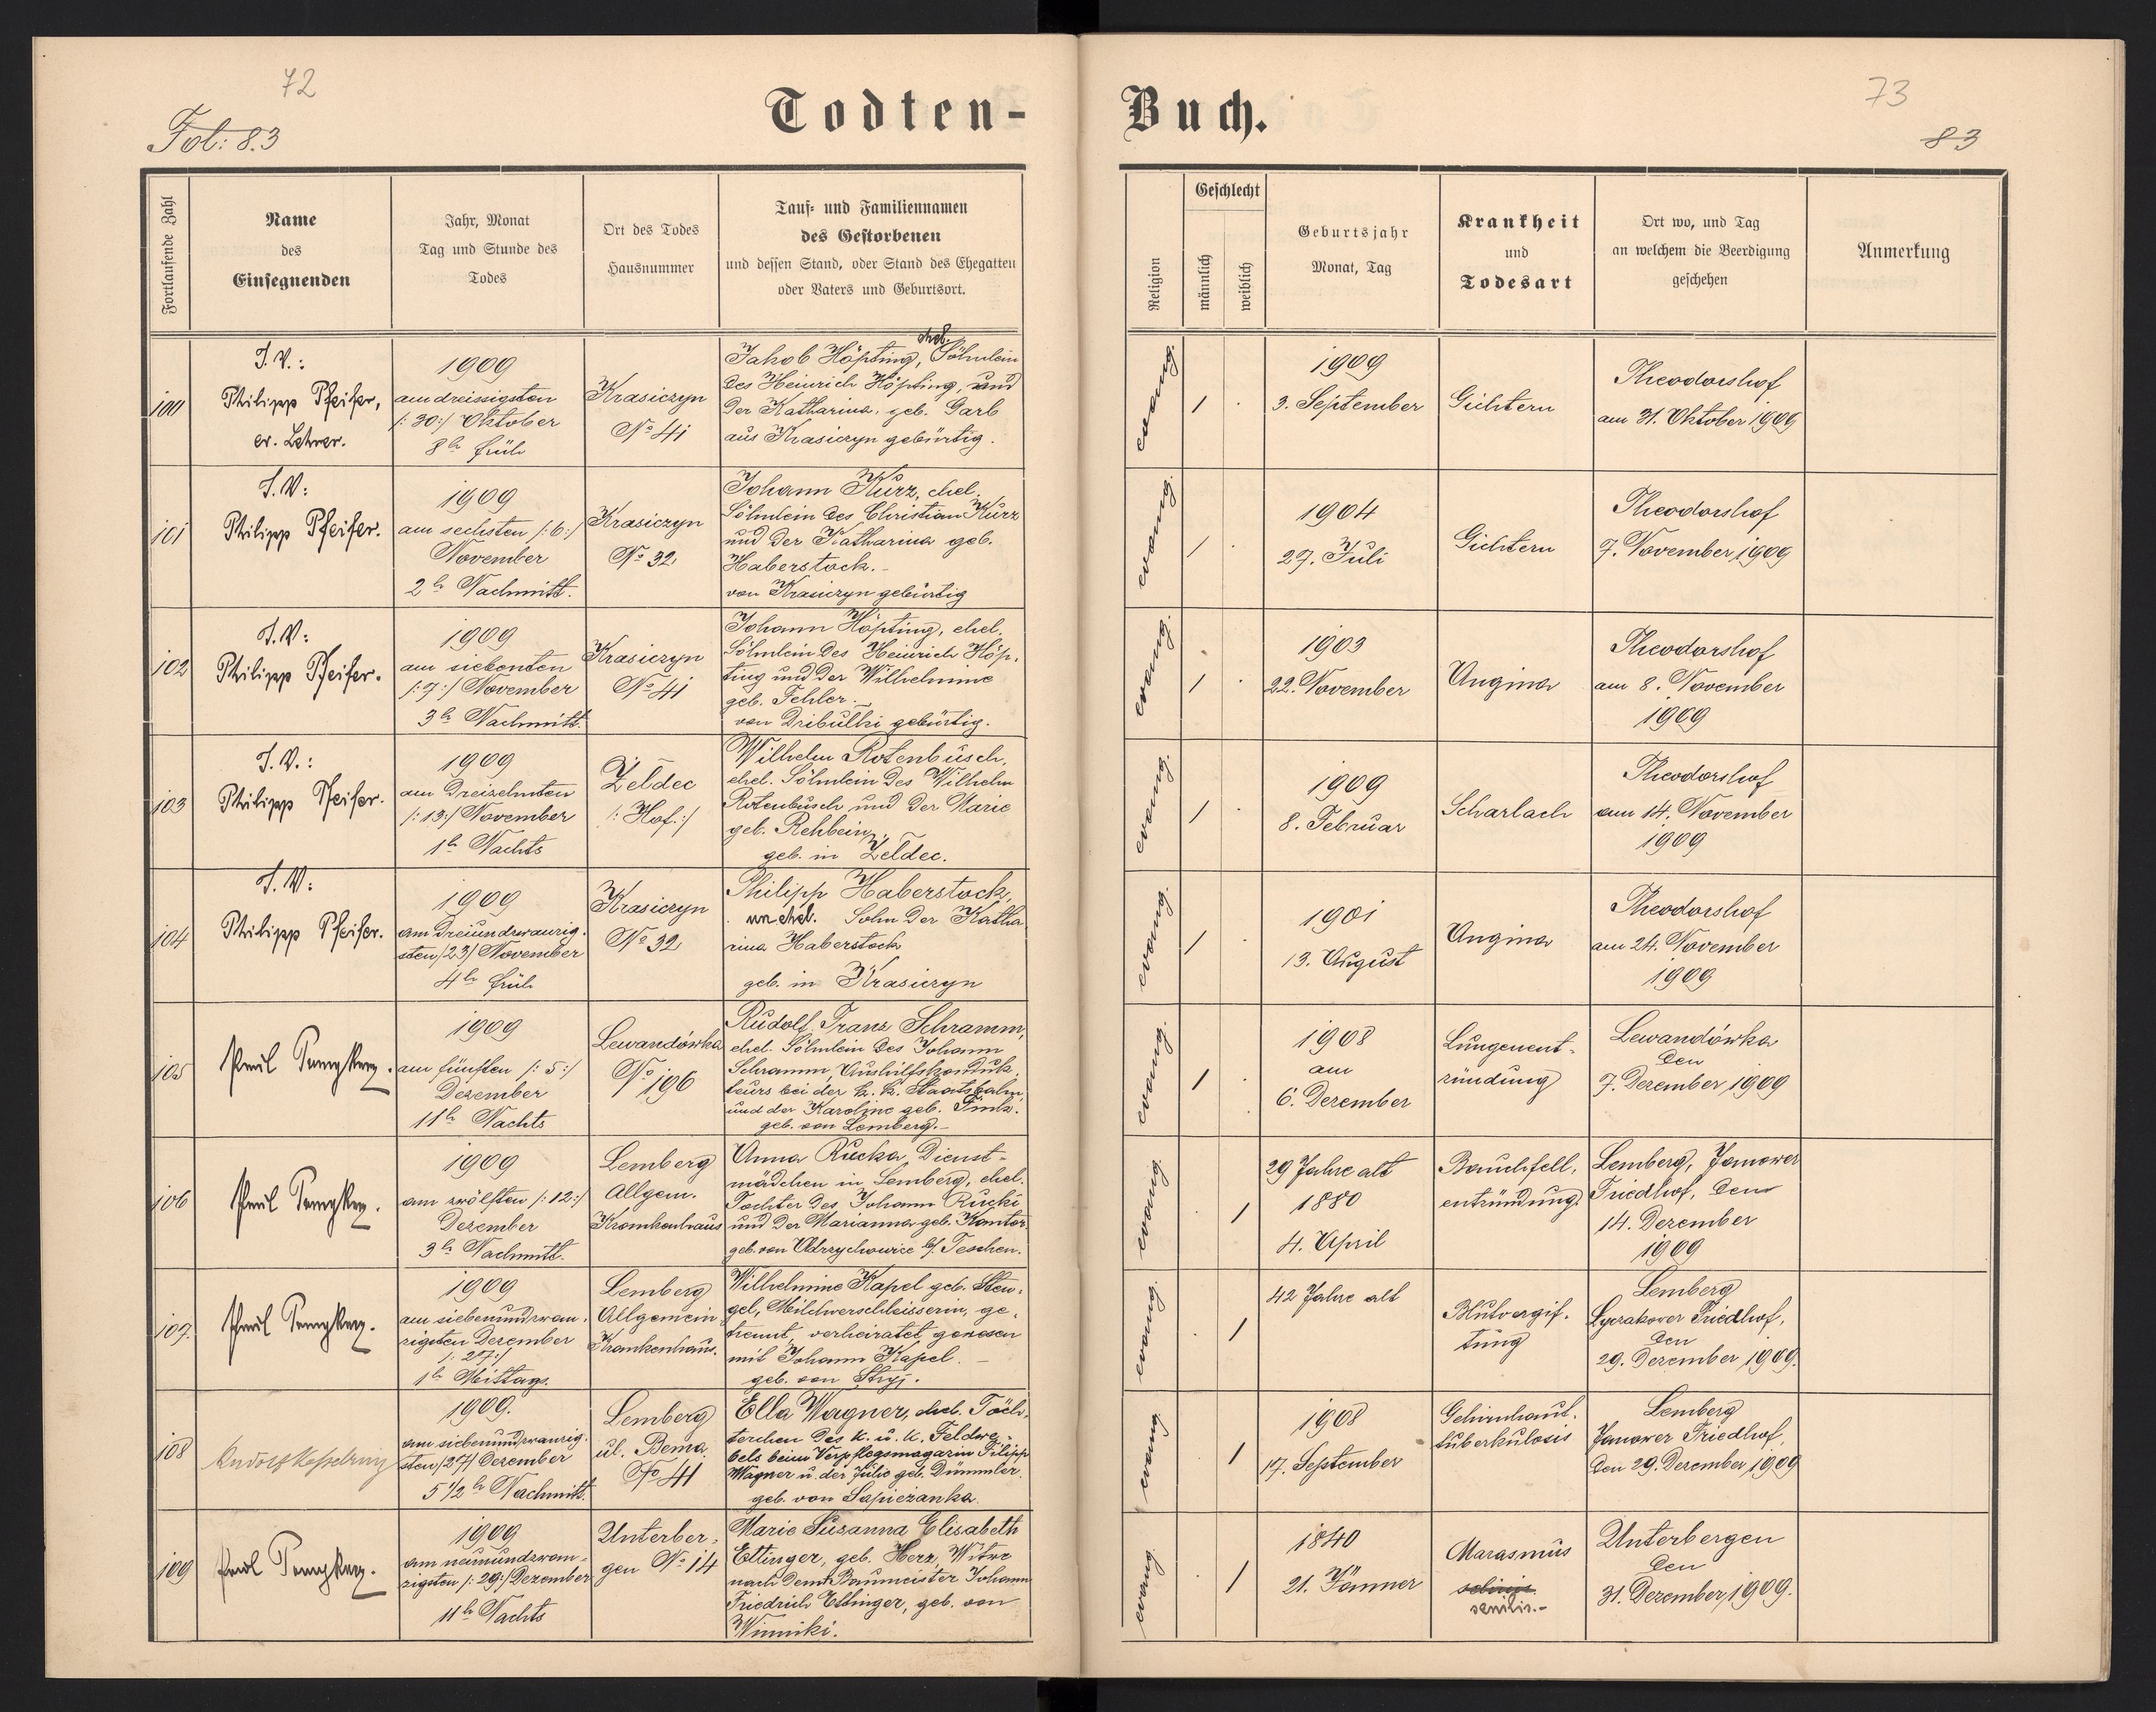 72
Fol: 83
Todten-
Fortlaufende Zahl
Name
des
Einsegnenden
Jahr, Monat
Tag und Stunde des
Todes
Ort des Todes
Hausnummer
Tauf- und Familiennamen
des Gestorbenen
und dessen Stand, oder Stand des Ehegatten
oder Vaters und Geburtsort.
100
I. V.:
Philipp Pfeifer,
ev. Lehrer.
1909
am dreissigsten
/: 30:/ Oktober
8h früh
Krasiczyn
No 41
ehel.
Jakob Höpting, Söhnlein
des Heinrich Höpting, und
der Katharina, geb. Garb
aus Krasiczyn gebürtig.
101
I. V:
Philipp Pfeifer.
1909
am sechsten /: 6:/
November
2h Nachmitt.
Krasiczyn
No 32
Johann Kurz, ehel.
Söhnlein des Christian Kurz
und der Katharina geb.
Haberstock.-
von Krasiczyn gebürtig
102
I. V:
Philipp Pfeifer.
1909
am siebenten
/: 7:/ November
3h Nachmitt.
Krasiczyn
No 41
Johann Höpting, ehel.
Söhnlein des Heinrich Höp-
ting und der Wilhelmine
geb. Fehler.-
von Dribulki gebürtig.
103
I. V.:
Philipp Pfeifer.
1909
am dreizehnten
/: 13:/ November
1h Nachts
Żeldec
/: Hof:/
Wilhelm Rotenbusch,
ehel. Söhnlein des Wilhelm
Rotenbusch und der Marie
geb. Rehbein,-
geb. in Żeldec.
104
I. V:
Philipp Pfeifer.
1909
am dreiundzwanzig-
sten /23/ November
4h früh
Krasiczyn
No 32
Philipp Haberstock,
unehel. Sohn der Katha
rina Haberstock
geb. in Krasiczyn
105
1909
am fünften /: 5:/
Dezember
11h Nachts
Lewandówka
No 196
Rudolf Franz Schramm,
ehel. Söhnlein des Johann
Schramm, Aushilfskonduk-
teurs bei der k. k. Staatsbahn,
und der Karoline geb. Fink.
geb. von Lemberg.-
106
1909
am zwölften /: 12:/
Dezember
3h Nachmitt.
Lemberg
Allgem.
Krankenhaus
Anna Rucka, Dienst-
mädchen in Lemberg, ehel.
Tochter des Johann Rucki
und der Marianna geb. Kantor
geb. von b/ Teschen.
107.
1909
am siebenundzwan-
zigsten Dezember
/: 27:/
1h Mittags.
Lemberg
Allgemein
Krankenhaus.
Wilhelmine Kapel geb. Sten-
gel, Milchverschleisserin, ge-
trennt, verheiratet gewesen
mit Johann Kapel. -
geb. von Stryj.
108
1909.
am siebenundzwanzig-
sten /27/ Dezember
5 1/2 h Nachmitt.
Lemberg
ul. Bema
No 41
Ella Wagner, ehel. Töch-
terchen des k. u. k. Feldwe-
bels beim Verpflegsmagazin Filipp
Wagner u. der Julie geb. Dümmler.
geb. von Sapieżanka.
109
1909
am neunundzwan-
zigsten /: 29:/ Dezember
11h Nachts
Unterber-
gen No 14
Marie Susanna Elisabeth
Ettinger, geb. Herz, Witwe
nach dem Baumeister Johann
Friedrich Ettinger, geb. von
Winniki.
73
83
Buch.
Religion
Geschlecht
männlich
weiblich
Geburtsjahr
Monat, Tag
Krankheit
und
Todesart
Ort wo, und Tag
an welchem die Beerdigung
geschehen
Anmerkung
evang.
1909
3. September
Gichtern
Theodorshof
am 31. Oktober 1909
evang.
1904
27. Juli
Gichtern
Theodorshof
7. November 1909
evang.
1903
22. November
Angina
Theodorshof
am 8. November
1909
evang.
1909
8. Februar
Scharlach
Theodorshof
am 14. November
1909
evang.
1901
13. August
Angina
Theodorshof
am 24. November
1909
evang.
1908
am
6. Dezember
Lungenent-
zündung
Lewandówka
den
7. Dezember 1909
evang.
29 Jahre alt
1880
4. April
Bauchfell-
entzündung
Lemberg, Janower
Friedhof, den
14. Dezember
1909
evang.
42 Jahre alt
Blutvergif-
tung
Lemberg
Lyczakower Friedhof,
den
29. Dezember 1909.
evang.
1908
17. September
Gehirnhaut-
tuberkulosis
Lemberg
Janower Friedhof,
den 29. Dezember 1909
evang.
1840
21. Jänner
Marasmus
senilis.-
Unterbergen
den
31. Dezember 1909.